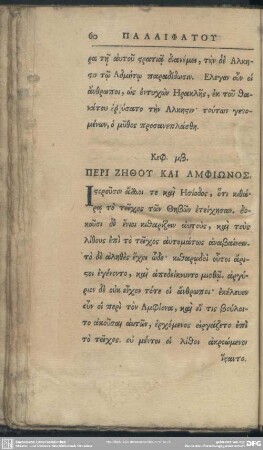 60 ΠΑΛΑΙΦΑΤΟΥ
ρα τῇ αὑτοῦ στρατιᾷ διανέμει, τὴν δὲ Ἄλκη-
στιν τῷ Ἀδμήτῳ παραδίδωσιν. Ἔλεγον οὖν οἱ
ἄνθρωποι, ὡς ἐντυχὼν Ἡρακλῆς, ἐκ τοῦ θα-
νάτου ἐῤῥύσατο τὴν Ἄλκηστιν· τούτων γενο-
μένων, ὁ μῦθος προσανεπλάσθη.
Κεφ. μβ.
ΠΕΡΙ ΖΗΘΟΥ ΚΑΙ ΑΜΦΙΩΝΟΣ.
Ἱστοροῦσιν ἄλλοι τε καὶ Ἡσίοδος, ὅτι κιθά-
ρᾳ τὸ τεῖχος τῶν Θηβῶν ἐτείχησαν. δο-
κοῦσι δὲ ἔνιοι κιθαρίζειν αὐτοὺς, καὶ τοὺς
λίθους ἐπὶ τὸ τεῖχος αὐτομάτως ἀναβαίνειν.
τὸ δὲ ἀληθὲς ἔχει ὧδε· κιθαρῳδοὶ οὗτοι ἄρι-
στοι ἐγένοντο, καὶ ἀπεδείκνυντο μισθοῦ. ἀργύ-
ριον δὲ οὐκ εἶχον τότε οἱ ἄνθρωποι· ἐκέλευον
οὖν οἱ περὶ τὸν Ἀμφίονα, καὶ εἴ τις βούλοι-
το ἀκοῦσαι αὐτῶν, ἐρχόμενος εἰργάζετο ἐπὶ
τὸ τεῖχος. οὐ μέντοι οἱ λίθοι ἀκροώμενοι
εἵποντο.